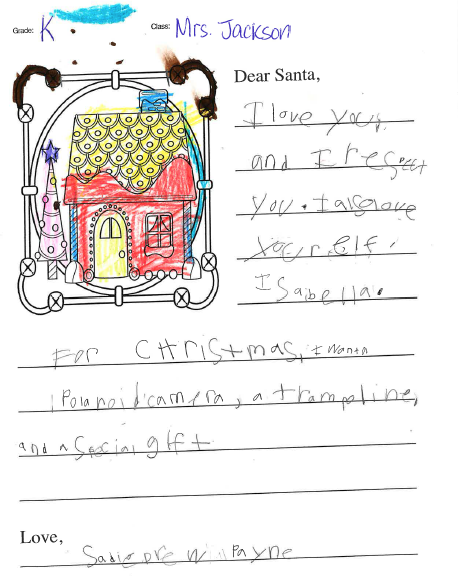 Grade: K Class: Mrs. Jackson
Dear Santa,
I love you,
and I respect
you. I also love
your elf.
Isabella.
For CHristmas, I want a
Polanoid camera, a trampoline,
and a Special gift
Love,
Sadie Payne